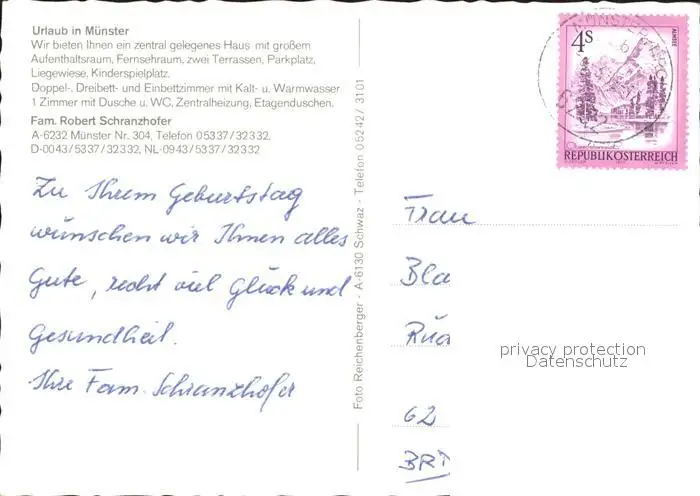 Urlaub in Münster
Wir bieten Ihnen ein zentral gelegenes Haus mit großem
Aufenthaltsraum, Fernsehraum, zwei Terrassen, Parkplatz,
Liegewiese, Kinderspielplatz.
Doppel-, Dreibett- und Einbettzimmer mit Kalt- u. Warmwasser
1 Zimmer mit Dusche u. WC, Zentralheizung, Etagenduschen.
Fam. Robert Schranzhofer
A-6232 Münster Nr. 304, Telefon 05337/32332,
D-0043/5337/32332, NL-0943/5337/32332
Zu Ihrem Geburtstag
wünschen wir Ihnen alles
Gute, recht viel Glück und
Gesundheit.
Ihre Fam. Schranzhofer
Foto Reichenberger - A-6130 Schwaz - Telefon 05242/3101
4S
ALMSEE
REPUBLIK ÖSTERREICH
Frau
Bla
62
BRD
privacy protection
Datenschutz